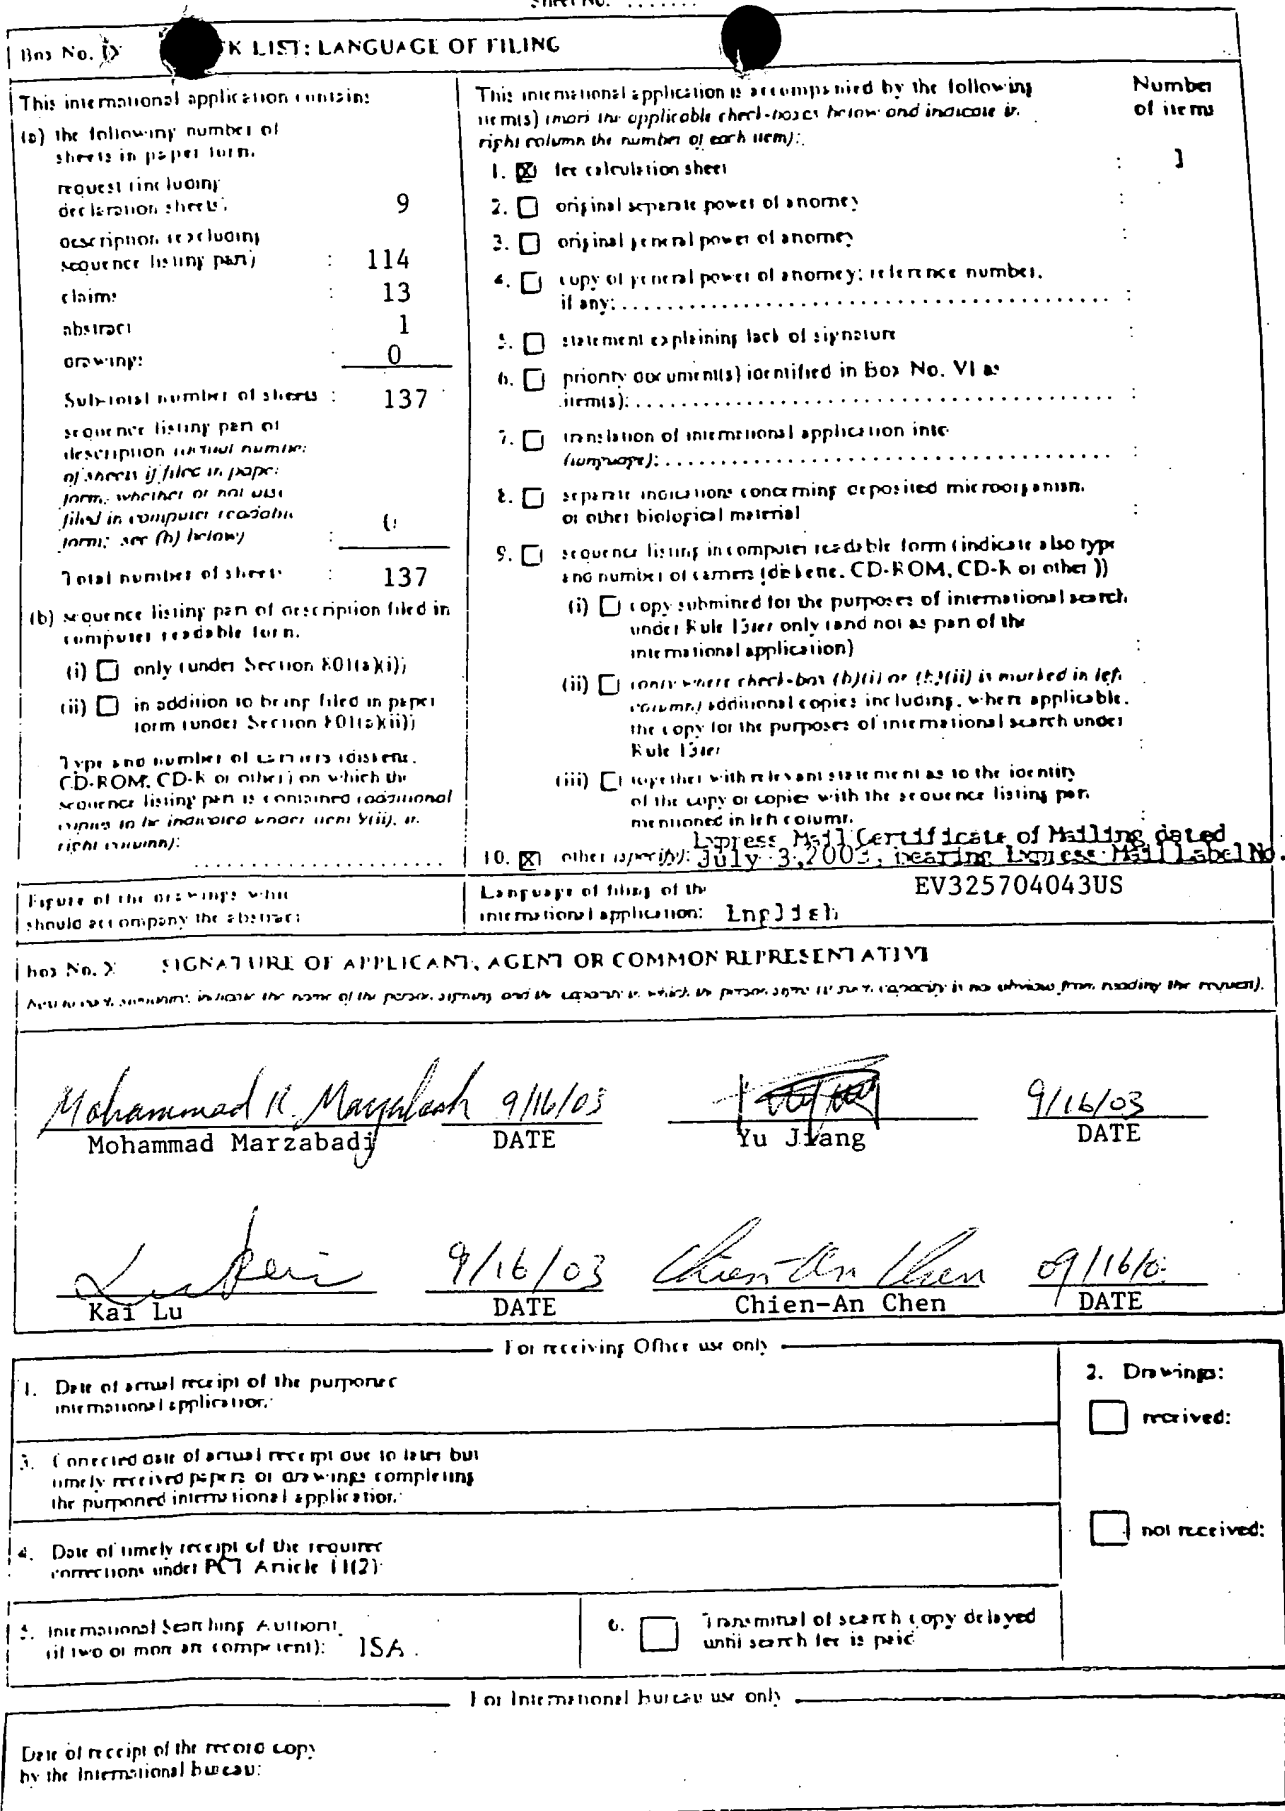 Sheet No. .......
Box No. IX K LIST: LANGUAGE OF FILING
This international application contains:
(a) the following number of
sheets in paper form.
request (including
declaration sheets) 9
description (excluding
sequence listing part) : 114
claims : 13
abstract : 1
drawings : 0
Sub-total number of sheets : 137
sequence listing part of
description (actual number
of sheets if filed in paper
form, whether or not also
filed in computer readable
form; see (b) below) :
Total number of sheets : 137
(b) sequence listing part of description filed in
computer readable form.
(i) only (under Section 801(a)(i))
(ii) in addition to being filed in paper
form (under Section 801(a)(ii))
Type and number of carriers (diskette,
CD-ROM, CD-R or other) on which the
sequence listing part is contained (additional
copies to be indicated under item 9(ii), in
right column):
Figure of the drawings which
should accompany the abstract:
This international application is accompanied by the following
item(s) (mark the applicable check-boxes below and indicate in
right column the number of each item):
Number
of items
1. fee calculation sheet : 1
2. original separate power of attorney :
3. original general power of attorney :
4. copy of general power of attorney; reference number,
if any: :
5. statement explaining lack of signature :
6. priority document(s) identified in Box No. VI as
item(s): :
7. translation of international application into
(language): :
8. separate indications concerning deposited microorganism
or other biological material :
9. sequence listing in computer readable form (indicate also type
and number of carriers (diskette, CD-ROM, CD-R or other))
(i) copy submitted for the purposes of international search
under Rule 13ter only (and not as part of the
international application) :
(ii) (only where check-box (b)(i) or (b)(ii) is marked in left
column) additional copies including, where applicable,
the copy for the purposes of international search under
Rule 13ter :
(iii) together with relevant statement as to the identity
of the copy or copies with the sequence listing part
mentioned in left column :
10. other (specify): Express Mail Certificate of Mailing dated
July 3, 2003, bearing Express Mail Label No.
EV325704043US
Language of filing of the
international application: English
Box No. X SIGNATURE OF APPLICANT, AGENT OR COMMON REPRESENTATIVE
Next to each signature, indicate the name of the person signing and the capacity in which the person signs (if such capacity is not obvious from reading the request).
9/16/03 9/16/03
Mohammad Marzabadi DATE Yu Jiang DATE
9/16/03 Chien-An Chen 09/16/0
Kai Lu DATE Chien-An Chen DATE
For receiving Office use only
1. Date of actual receipt of the purported
international application:
2. Drawings:
received:
not received:
3. Corrected date of actual receipt due to later but
timely received papers or drawings completing
the purported international application:
4. Date of timely receipt of the required
corrections under PCT Article 11(2):
5. International Searching Authority
(if two or more are competent): ISA .
6. Transmittal of search copy delayed
until search fee is paid
For International Bureau use only
Date of receipt of the record copy
by the International Bureau: